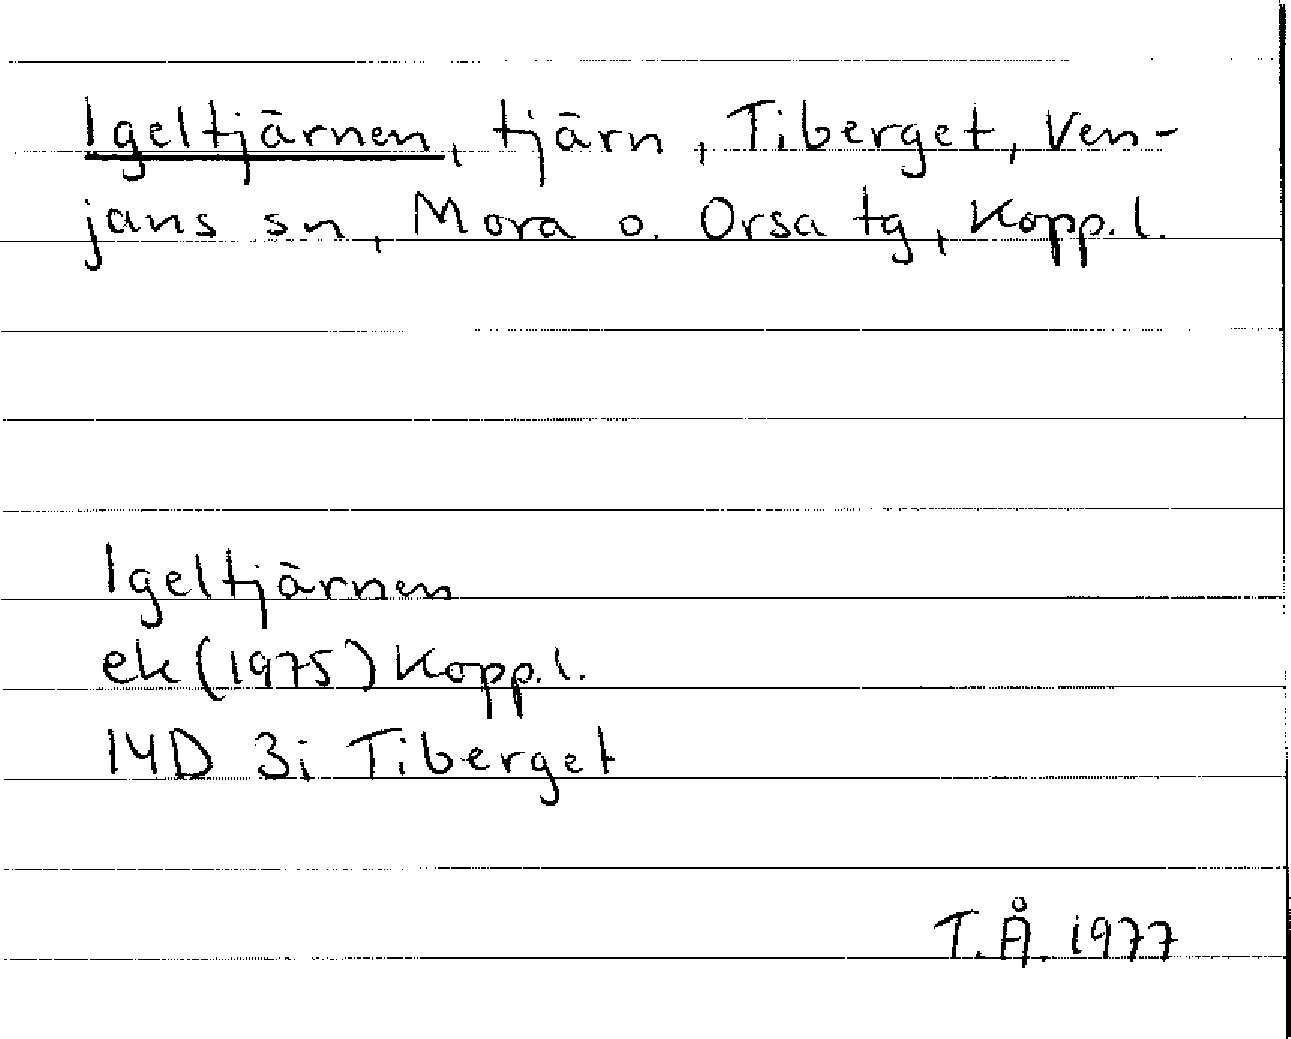 Igeltjärnen, tjärn, Tiberget, Ven-
jans sn, Mora o. Orsa tg, Kopp. l.
Igeltjärnen
ek (1975) Kopp. l.
14D 3i Tiberget
T.Å. 1977